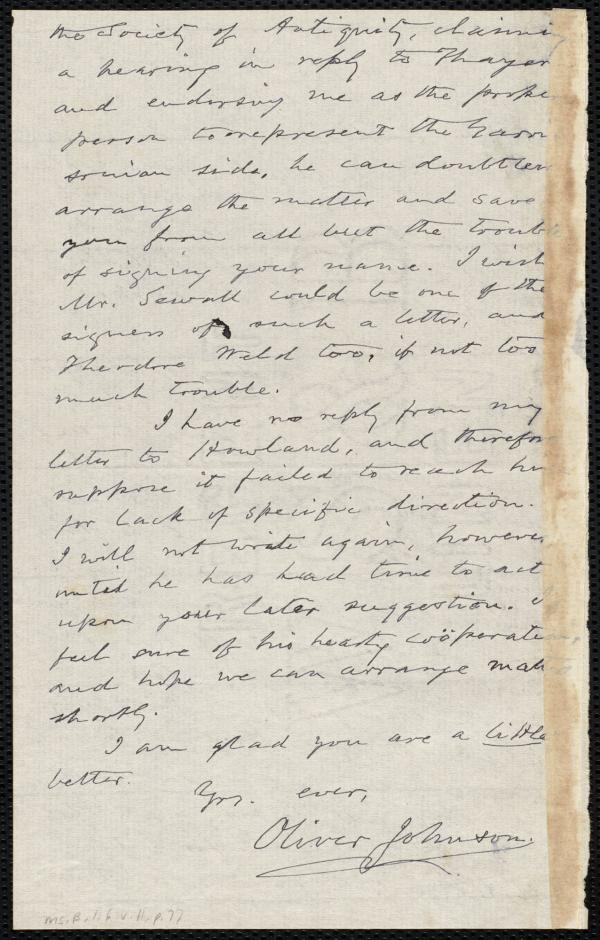 the Society of Antiquity, claimi
a hearing in reply to Thayer
and endorsing me as the prope
person to represent the Garri-
sonian side, he can doubtless
arrange the matter and save
you from all but the trouble
of signing your name. I wish
Mr. Sewall could be one of the
signers of such a letter, and
Theodore Weld too, if not too
much trouble.
I have no reply from my
letter to Howland, and therefor
suppose it failed to reach hi
for lack of specific direction.
I will not write again, however,
until he has had time to act
upon your later suggestion. I
feel sure of his hearty coöperation,
and hope we can arrange mat
shortly.
I am glad you are a little
better.
Yrs. ever,
Oliver Johnson.
Ms.B.1.6 v.11, p.77